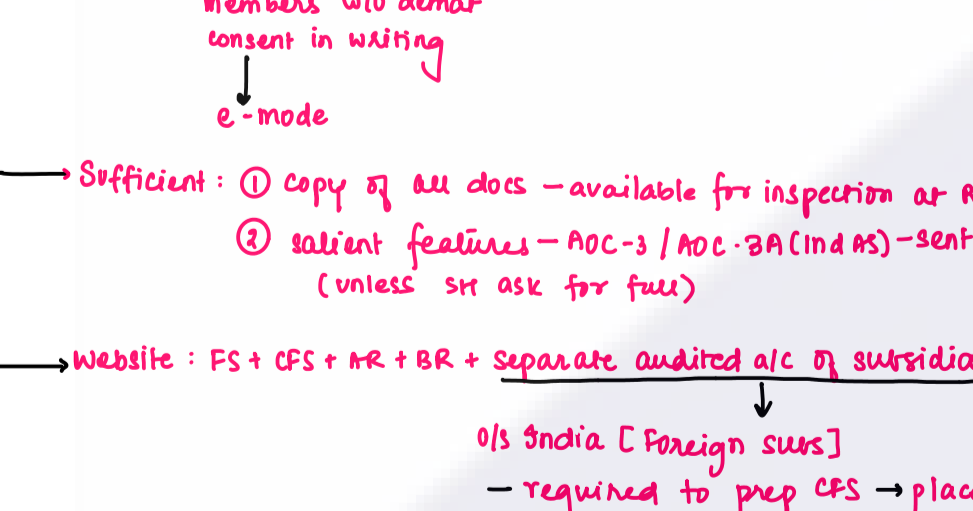 members w/o demat
consent in writing
e-mode
Sufficient : ① copy of all docs – available for inspection at R
② salient features – AOC-3 / AOC-3A (Ind AS) – sent
(unless SH ask for full)
Website : FS + CFS + AR + BR + separate audited a/c of subsidia
O/S India [Foreign subs]
– required to prep CFS → plac